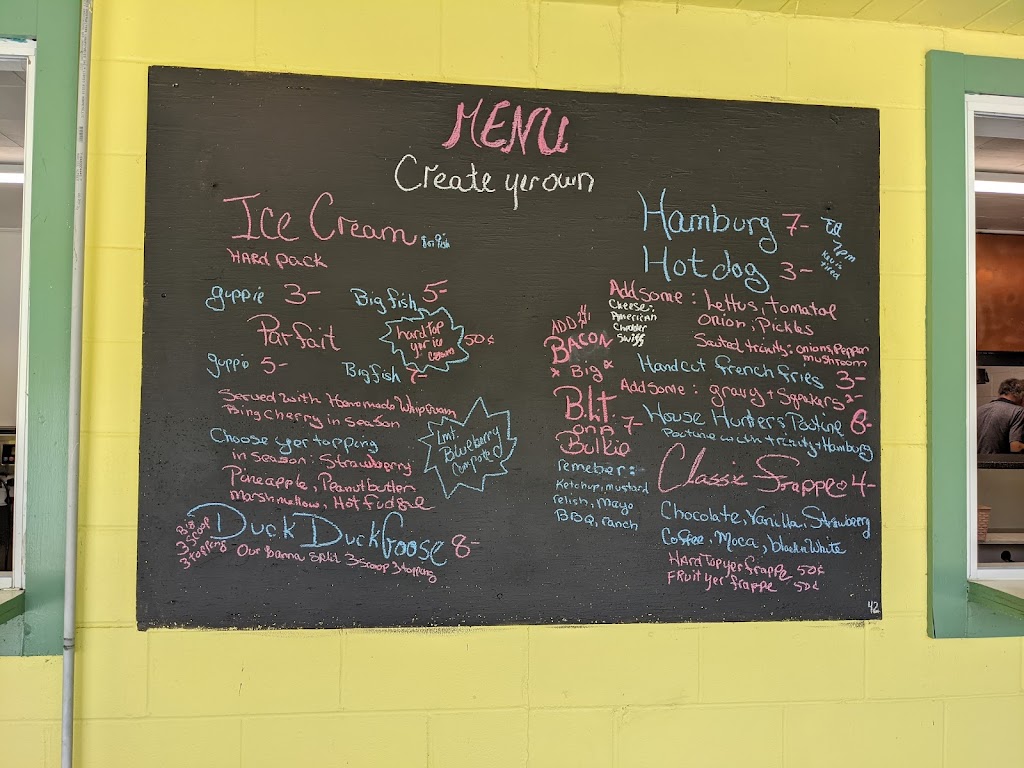 MENU
Create yer own
Ice Cream
HARD pack
guppie 3-
Big fish 5-
Parfait
hard top
yer ice
cream
50¢
guppie 5-
Big fish 7-
Served with Homemade Whip cream
Bing cherry in season
Choose yer topping
in season: Strawberry
Pineapple, Peanutbutter
Marshmellow, Hot fudge
Imt.
Blueberry
Compote
Big
3 Scoop
3 topping
Duck Duck Goose 8-
Our Banna Split 3 scoop 3 topping
ADD $1
BACON
* Big *
B.L.T
on A 7-
Bulkie
remeber:
Ketchup, mustard
relish, mayo
BBQ, ranch
Hamburg 7-
Hot dog 3-
7pm
Add some: Lettus, Tomatoe
onion, Pickles
Cheese:
American
Chedder
Swiss
Sauted trinity: onions, Pepper
mushroom
Handcut french fries 3-
Add some: gravy + Squeakers 2-
House Hunters Poutine 8-
Poutine with trinity + Hamburg
Classic Frappe 4-
Chocolate, Vanilla, Strawberry
Coffee, Moca, black n White
HARD Top yer frappe 50¢
FRUIT yer frappe 50¢
42